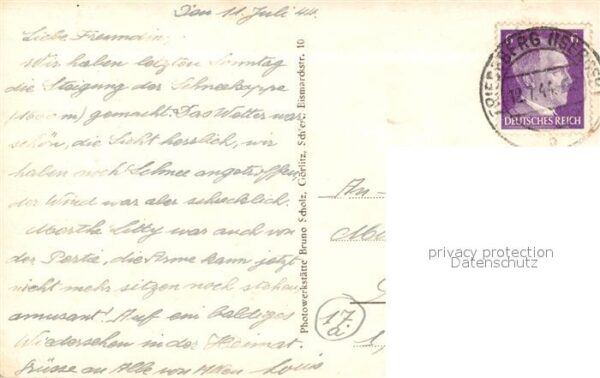 Den 11. Juli 44.
Liebe Freundin:
Wir haben letzten Sonntag
die Steigung der Schneekoppe
(1600 m) gemacht. Das Wetter war
schön, die Sicht herrlich, wir
haben noch Schnee angetroffen,
der Wind war aber schrecklich.
Marthe Litty war auch von
der Partie, die Arme kann jetzt
nicht mehr sitzen noch stehen
amusant! Auf ein baldiges
Wiedersehen in der Heimat.
Grüsse an Alle von Allen Louis
Photowerkstätte Bruno Scholz, Görlitz, Schles., Bismarckstr. 10
An-
17a
12.7.44
DEUTSCHES REICH
privacy protection
Datenschutz